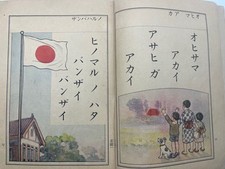 オヒサマ
アカイ
アサヒガ
アカイ
ヒノマル ノ ハタ
バンザイ
バンザイ